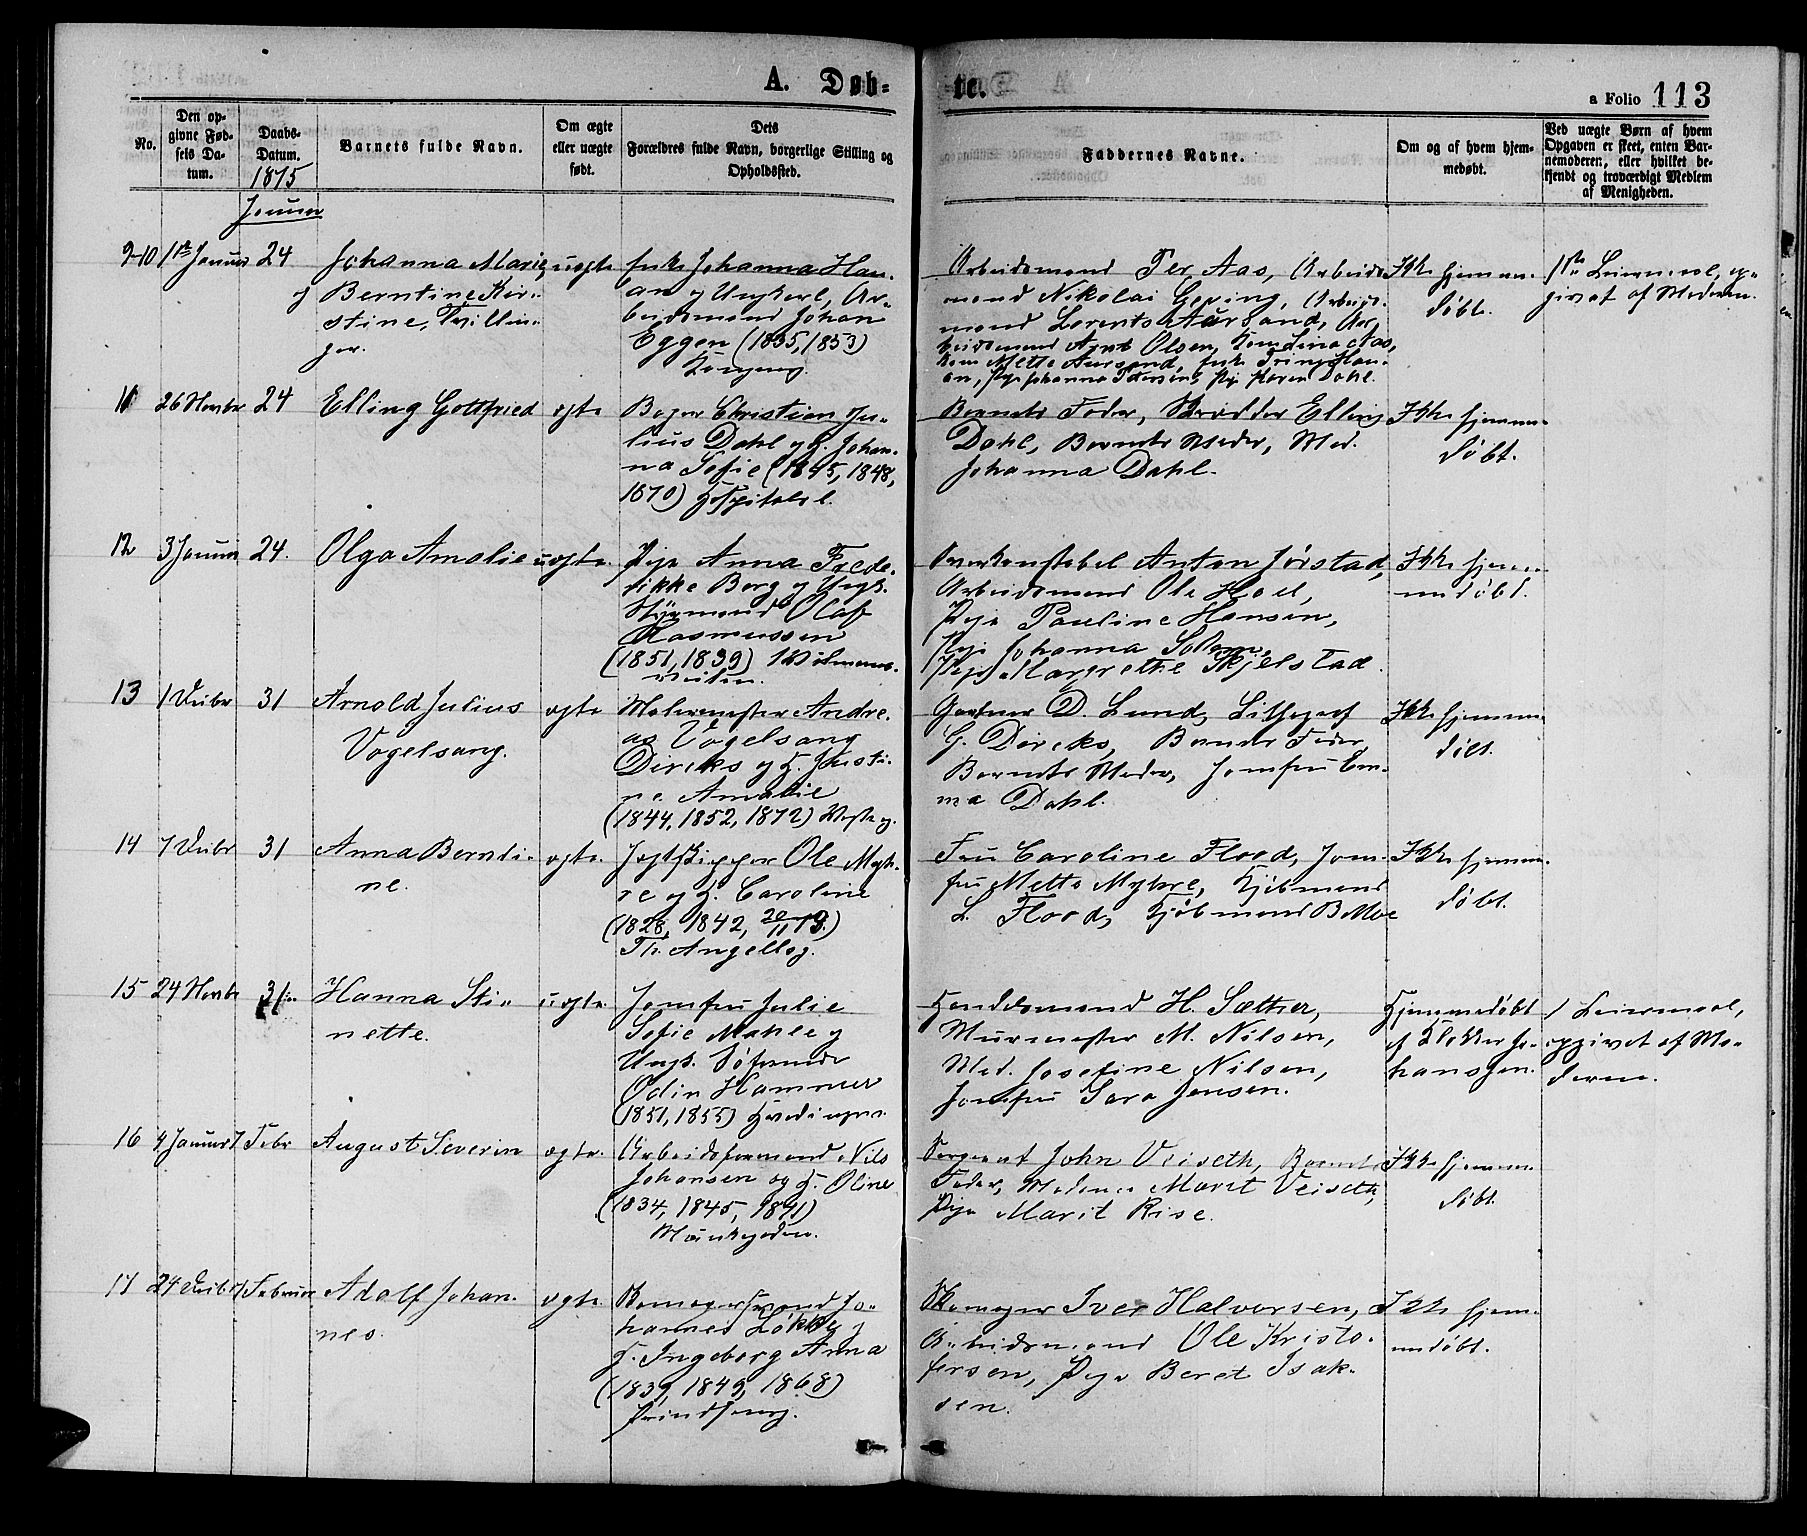 A. Døb-
te.
a Folio 113
No.
Den op-
givne Fød-
sels Da-
tum.
Daabs-
Datum.
1875
Barnets fulde Navn.
Om ægte
eller uægte
født.
Dets
Forældres fulde Navn, borgerlige Stilling og
Opholdssted.
Faddernes Navne.
Om og af hvem hjem-
medøbt.
Ved uægte Børn af hvem
Opgaven er skeet, enten Bar-
nemoderen, eller hvilket be-
kjendt og troværdigt Medlem
af Menigheden.
Januar
9-10
1ste Januar
24
Johanna Marie
og
Berntine Kir-
stine, Tvillin-
ger.
uægte
Enke Johanna Han-
an og Ungkarl, Ar-
beidsmand Johan
Eggen (1835, 1853)
Arbeidsmand Per Aas, Arbeids-
mand Nikolai Geving, Arbeids-
mand Lorents Aursand, Ar-
beidsmand Arnt Olsen, Kone Lina Aas,
Kone Mette Aursand, Enke Trine Han-
an, Pige Johanna Petersen, Pige Karen Dahl.
Ikke hjemme-
døbt.
1ste Leiermaal, op-
givet af Moderen.
11
26 Novbr
24
Elling Gottfried
ægte
Bager Christian Ju-
lius Dahl og H. Johan-
na Sofie (1845, 1848,
1870) Hospitalsl.
Barnets Fader, Skrædder Elling
Dahl, Barnets Moder, Mad.
Johanna Dahl.
Ikke hjemme-
døbt.
12
3 Januar
24.
Olga Amalie
uægte.
Pige Anna Frede-
rikke Berg og Ungk.
Styrmand Olaf
Rasmussen
(1851, 1839)
Overkonstabel Anton Jørstad,
Arbeidsmand Ole Hoel,
Pige Pauline Hansen,
Pige Johanna Solem,
Pige Margrethe Skjelstad.
Ikke hjem-
medøbt.
13
1 Decbr
31
Arnold Julius
Vogelsang.
ægte
Malermester Andre-
as Vogelsang
Dircks og H. Justi-
ne Amalie
(1844, 1852, 1872)
Gartner D. Lund, Lithograf
G. Dircks, Barnets Fader,
Barnets Moder, Jomfru Em-
ma Dahl.
Ikke hjemme-
døbt.
14
7 Decbr
31
Anna Bernti-
ne.
ægte.
Jagtskipper Ole Myh-
re og H. Caroline
(1828, 1842, 20/11 19.)
Th. Angellsg.
Fru Caroline Flood, Jom-
fru Mette Myhre, Kjøbmand
L. Flood, Kjøbmand B. Moe
Ikke hjemme-
døbt.
15
24 Novbr
31
Hanna Sti-
nette.
uægte.
Jomfru Julie
Sofie Mahle og
Ungk. Søfarende
Odin Hammer
(1851, 1855)
Handelsmand H. Sæther,
Murmester M. Nilsen,
Mad. Josefine Nilsen,
Jomfru Sara Jensen.
Hjemmedøbt
af Klokker Jo-
hansen.
1 Leiermaal,
opgivet af Mo-
deren.
16
4 Januar
7 Febr
August Severin
ægte.
Arbeidsformand Nils
Johansen og H. Oline
(1834, 1845, 1871)
Munkegaden.
Sergeant John Veiseth, Barnets
Fader, Madame Marit Veiseth,
Pige Marit Rise.
Ikke hjemme-
døbt.
17
24 Decbr
7 Februar
Adolf Johan-
nes.
ægte.
Skomagersvend Jo-
hannes Løkke og
H. Ingeborg Anna
(1839, 1849, 1868)
Prindsensg.
Skomager Iver Halvorsen,
Arbeidsmand Ole Kristo-
fersen, Pige Beret Isak-
sen.
Ikke hjem-
medøbt.